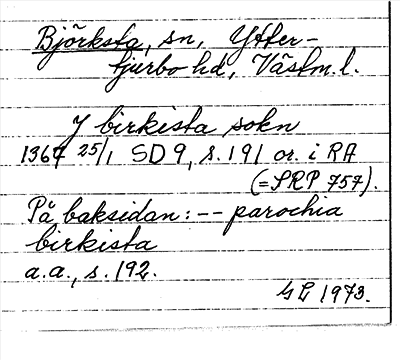 Björksta, sn, Ytter-
tjurbo hd, Västm. l.
J birkista sokn
1367 25/1 SD 9, s. 191 or. i RA
(=SRP 757).
På baksidan: -- parochia
birkista
a.a., s. 192.
GL 1973.